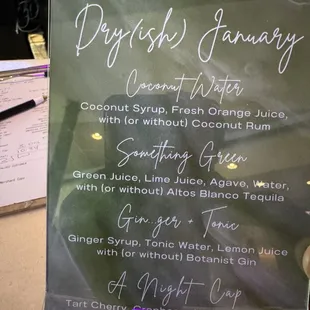 Dry(ish) January
Coconut Water
Coconut Syrup, Fresh Orange Juice,
with (or without) Coconut Rum
Something Green
Green Juice, Lime Juice, Agave, Water,
with (or without) Altos Blanco Tequila
Gin..ger + Tonic
Ginger Syrup, Tonic Water, Lemon Juice
with (or without) Botanist Gin
A Night Cap
Tart Cherry,